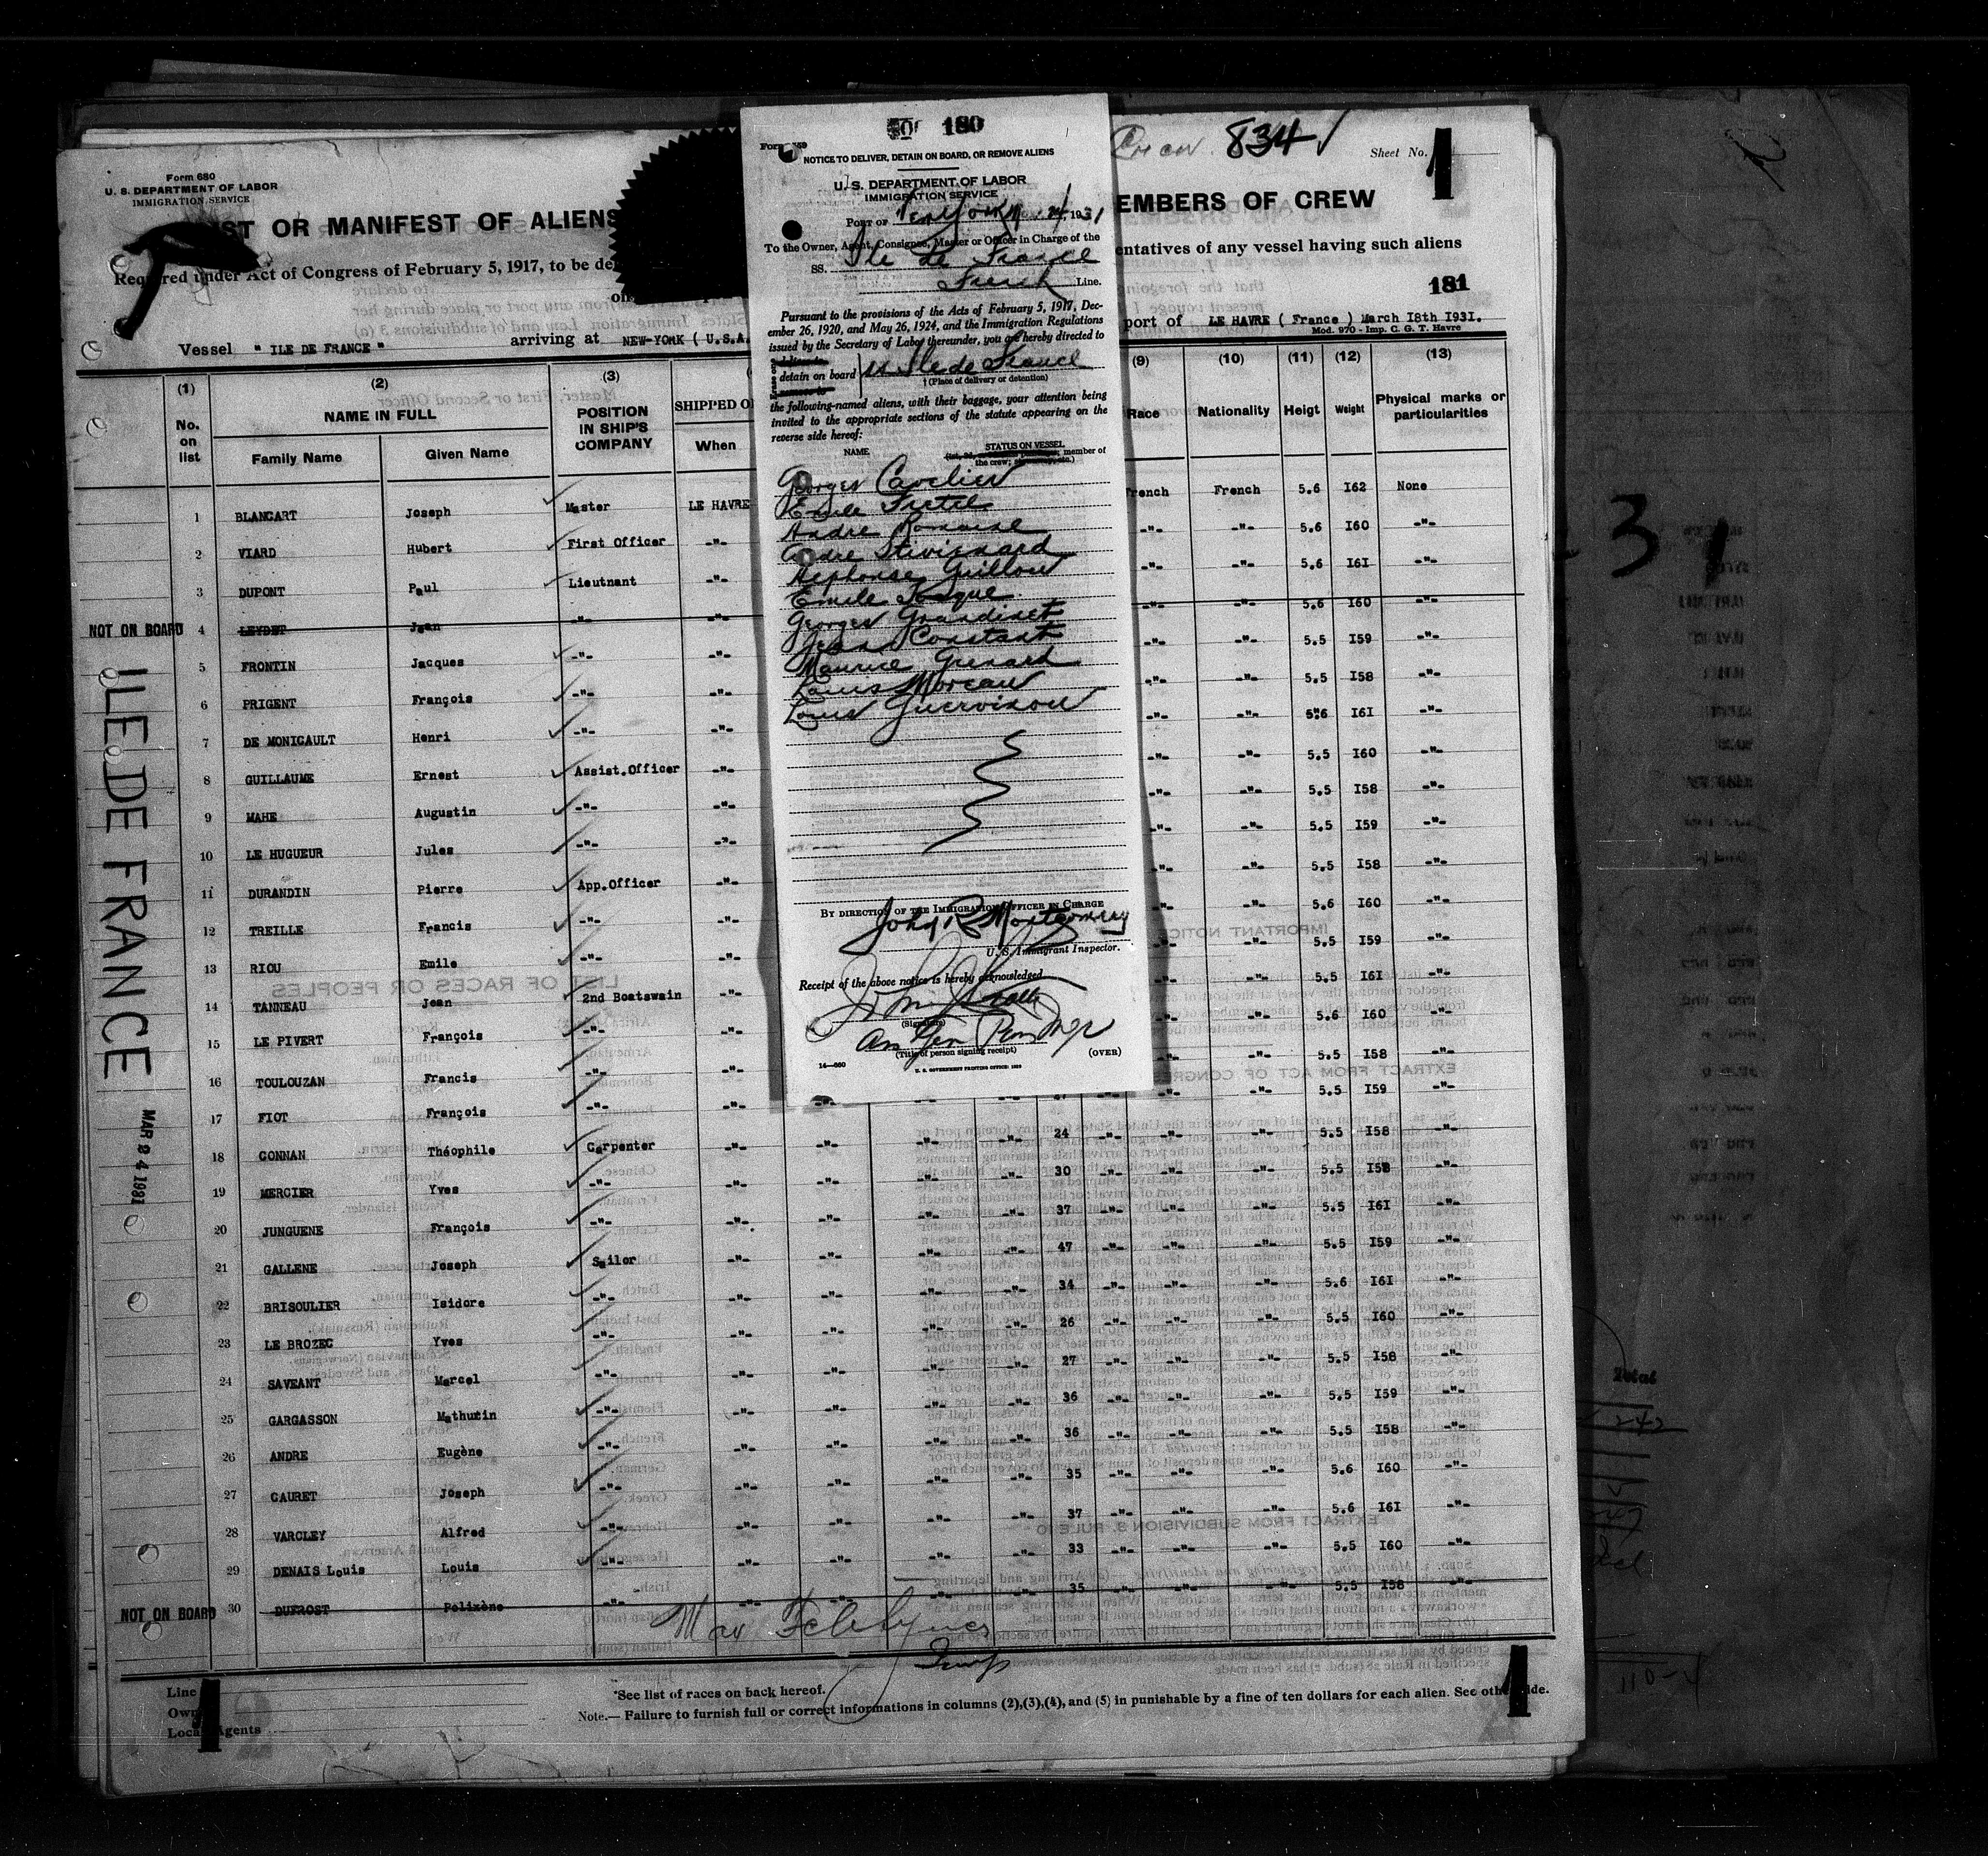 180
Form 659
NOTICE TO DELIVER, DETAIN ON BOARD, OR REMOVE ALIENS
U. S. DEPARTMENT OF LABOR
IMMIGRATION SERVICE
PORT OF New York 24, 1931
To the Owner, Agent, Consignee, Master or Officer in Charge of the
SS. Ile de France
French Line.
Pursuant to the provisions of the Acts of February 5, 1917, Dec-
ember 26, 1920, and May 26, 1924, and the Immigration Regulations
issued by the Secretary of Labor thereunder, you are hereby directed to
detain on board Ile de France
† (Place of delivery or detention)
the following-named aliens, with their baggage, your attention being
invited to the appropriate sections of the statute appearing on the
reverse side hereof:
NAME STATUS ON VESSEL
member of
the crew;
Georges Cavelier
Emile
Andre
Andre
Alphonse Guillou
Emile
Georges Grandinet
Jean Constant
Maurice Grenard
Louis Moreau
Louis
BY DIRECTION OF THE IMMIGRATION OFFICER IN CHARGE
John R Montgomery
U. S. Immigrant Inspector.
Receipt of the above notice is hereby acknowledged
(Signature)
(Title of person signing receipt) (OVER)
14—660 U. S. GOVERNMENT PRINTING OFFICE
Form 680
U. S. DEPARTMENT OF LABOR
IMMIGRATION SERVICE
834
Sheet No. 1
ST OR MANIFEST OF ALIENS EMBERS OF CREW
Required under Act of Congress of February 5, 1917, to be de entatives of any vessel having such aliens
181
Vessel " ILE DE FRANCE " arriving at NEW-YORK ( U.S.A. port of LE HAVRE ( France ) March I8th I93I.
Mod. 970 - Imp. C. G. T. Havre
(1) (2) (3) (9) (10) (11) (12) (13)
No. on list NAME IN FULL POSITION IN SHIP'S COMPANY SHIPPED O Race Nationality Heigt Weight Physical marks or particularities
Family Name Given Name When
1 BLANCART Joseph Master LE HAVRE French French 5.6 I62 None
2 VIARD Hubert First Officer -"- -"- -"- 5.6 I60 -"-
3 DUPONT Paul Lieutnant -"- -"- -"- 5.6 I6I -"-
NOT ON BOARD 4 LEYDET Jean -"- -"- -"- -"- 5.6 I60 -"-
5 FRONTIN Jacques -"- -"- -"- -"- 5.5 I59 -"-
6 PRIGENT François -"- -"- -"- -"- 5.5 I58 -"-
7 DE MONICAULT Henri -"- -"- -"- -"- 5.6 I6I -"-
8 GUILLAUME Ernest Assist.Officer -"- -"- -"- 5.5 I60 -"-
9 MAHE Augustin -"- -"- -"- -"- 5.5 I58 -"-
10 LE HUGUEUR Jules -"- -"- -"- -"- 5.5 I59 -"-
11 DURANDIN Pierre App.Officer -"- -"- -"- 5.5 I58 -"-
12 TREILLE Francis -"- -"- -"- -"- 5.6 I60 -"-
13 RIOU Emile -"- -"- -"- -"- 5.5 I59 -"-
14 TANNEAU Jean 2nd Boatswain -"- -"- -"- 5.5 I6I -"-
15 LE PIVERT François -"- -"- -"- -"- 5.6 I60 -"-
16 TOULOUZAN Francis -"- -"- -"- -"- 5.5 I58 -"-
17 FIOT François -"- -"- -"- -"- 5.5 I59 -"-
18 CONNAN Théophile Carpenter -"- -"- -"- -"- 24 -"- -"- -"- 5.5 I58 -"-
19 MERCIER Yves -"- -"- -"- -"- -"- 30 -"- -"- -"- 5.5 I58 -"-
20 JUNGUENE François -"- -"- -"- -"- -"- 37 -"- -"- -"- 5.5 I6I -"-
21 GALLENE Joseph Sailor -"- -"- -"- -"- 47 -"- -"- -"- 5.5 I59 -"-
22 BRISOULIER Isidore -"- -"- -"- -"- -"- 34 -"- -"- -"- 5.6 I6I -"-
23 LE BROZEC Yves -"- -"- -"- -"- -"- 26 -"- -"- -"- 5.5 I60 -"-
24 SAVEANT Marcel -"- -"- -"- -"- -"- 27 -"- -"- -"- 5.5 I58 -"-
25 GARGASSON Mathurin -"- -"- -"- -"- -"- 36 -"- -"- -"- 5.5 I59 -"-
26 ANDRE Eugène -"- -"- -"- -"- -"- 36 -"- -"- -"- 5.5 I58 -"-
27 CAURET Joseph -"- -"- -"- -"- -"- 35 -"- -"- -"- 5.6 I60 -"-
28 VARCLEY Alfred -"- -"- -"- -"- -"- 37 -"- -"- -"- 5.6 I6I -"-
29 DENAIS Louis Louis -"- -"- -"- -"- -"- 33 -"- -"- -"- 5.5 I60 -"-
NOT ON BOARD 30 DUFROST Polixène -"- -"- -"- -"- -"- 35 -"- -"- -"- 5.5 I58 -"-
ILE DE FRANCE
MAR 24 1931
Line
Own
Local Agents
*See list of races on back hereof.
Note.— Failure to furnish full or correct informations in columns (2),(3),(4), and (5) in punishable by a fine of ten dollars for each alien. See oth ide.
1 1
Total